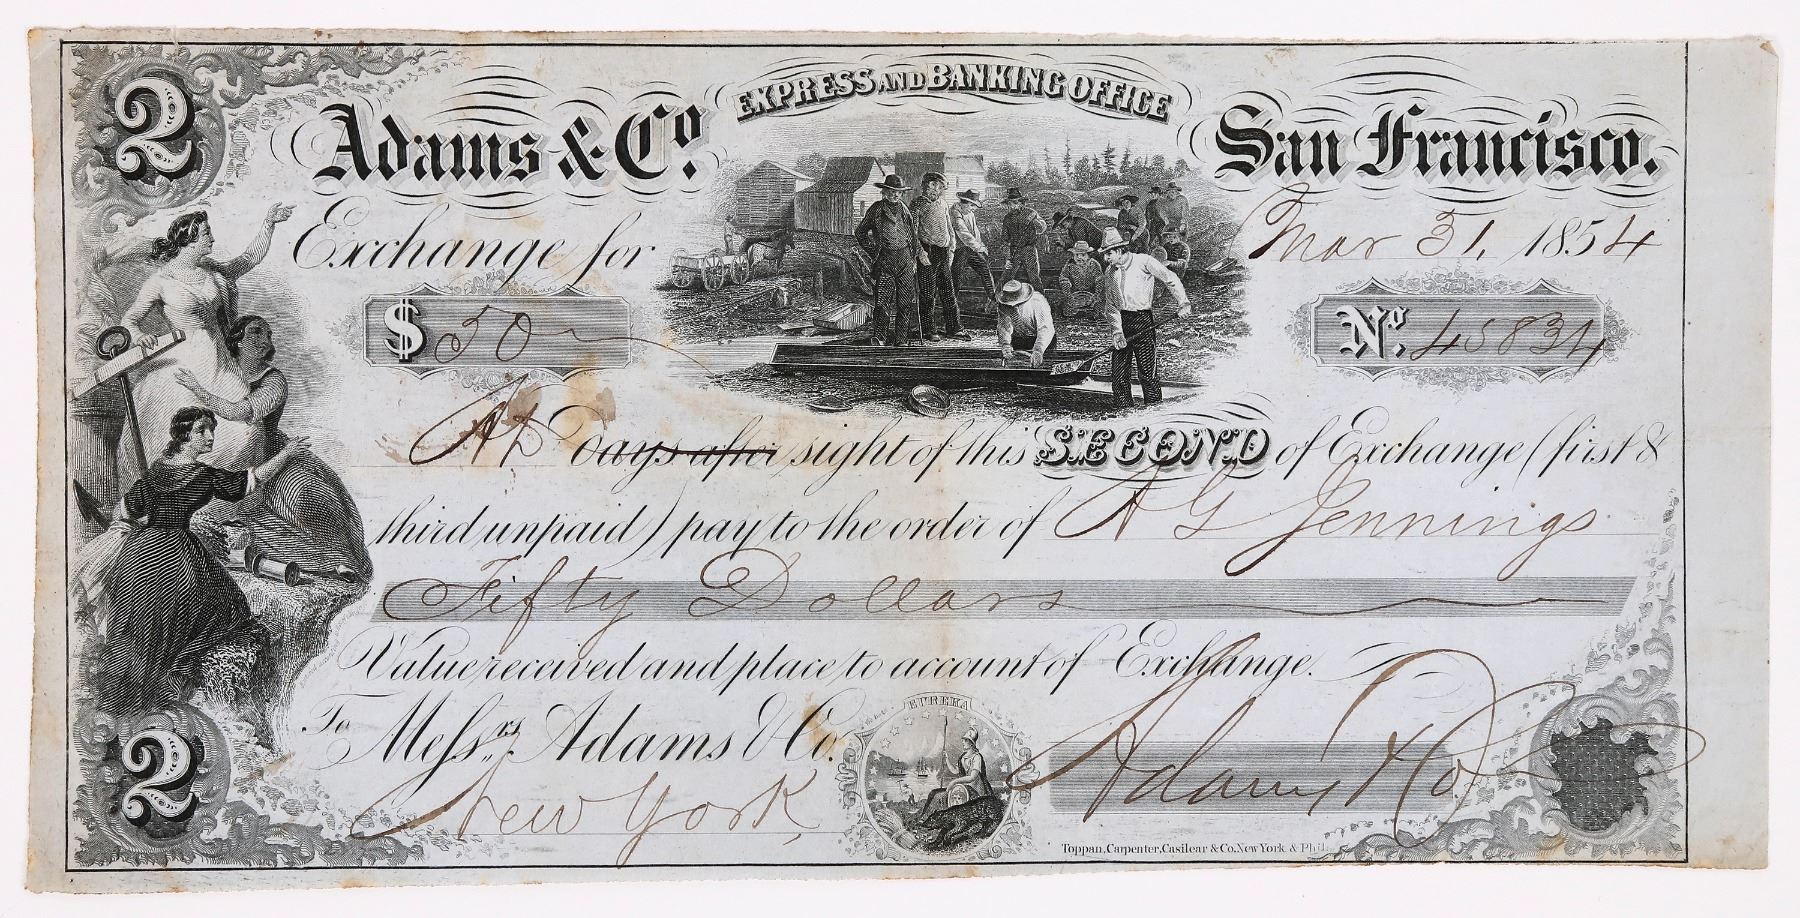 2
EXPRESS AND BANKING OFFICE
Adams & Co. San Francisco.
Exchange for Mar 31, 1854
$ 50 No. 45834
At Days after sight of this SECOND of Exchange (first &
third unpaid) pay to the order of A G Jennings
Fifty Dollars
Value received and place to account of Exchange.
To Messrs. Adams & Co.
EUREKA
Adams & Co
2
New York,
Toppan, Carpenter, Casilear & Co. New York & Phil.